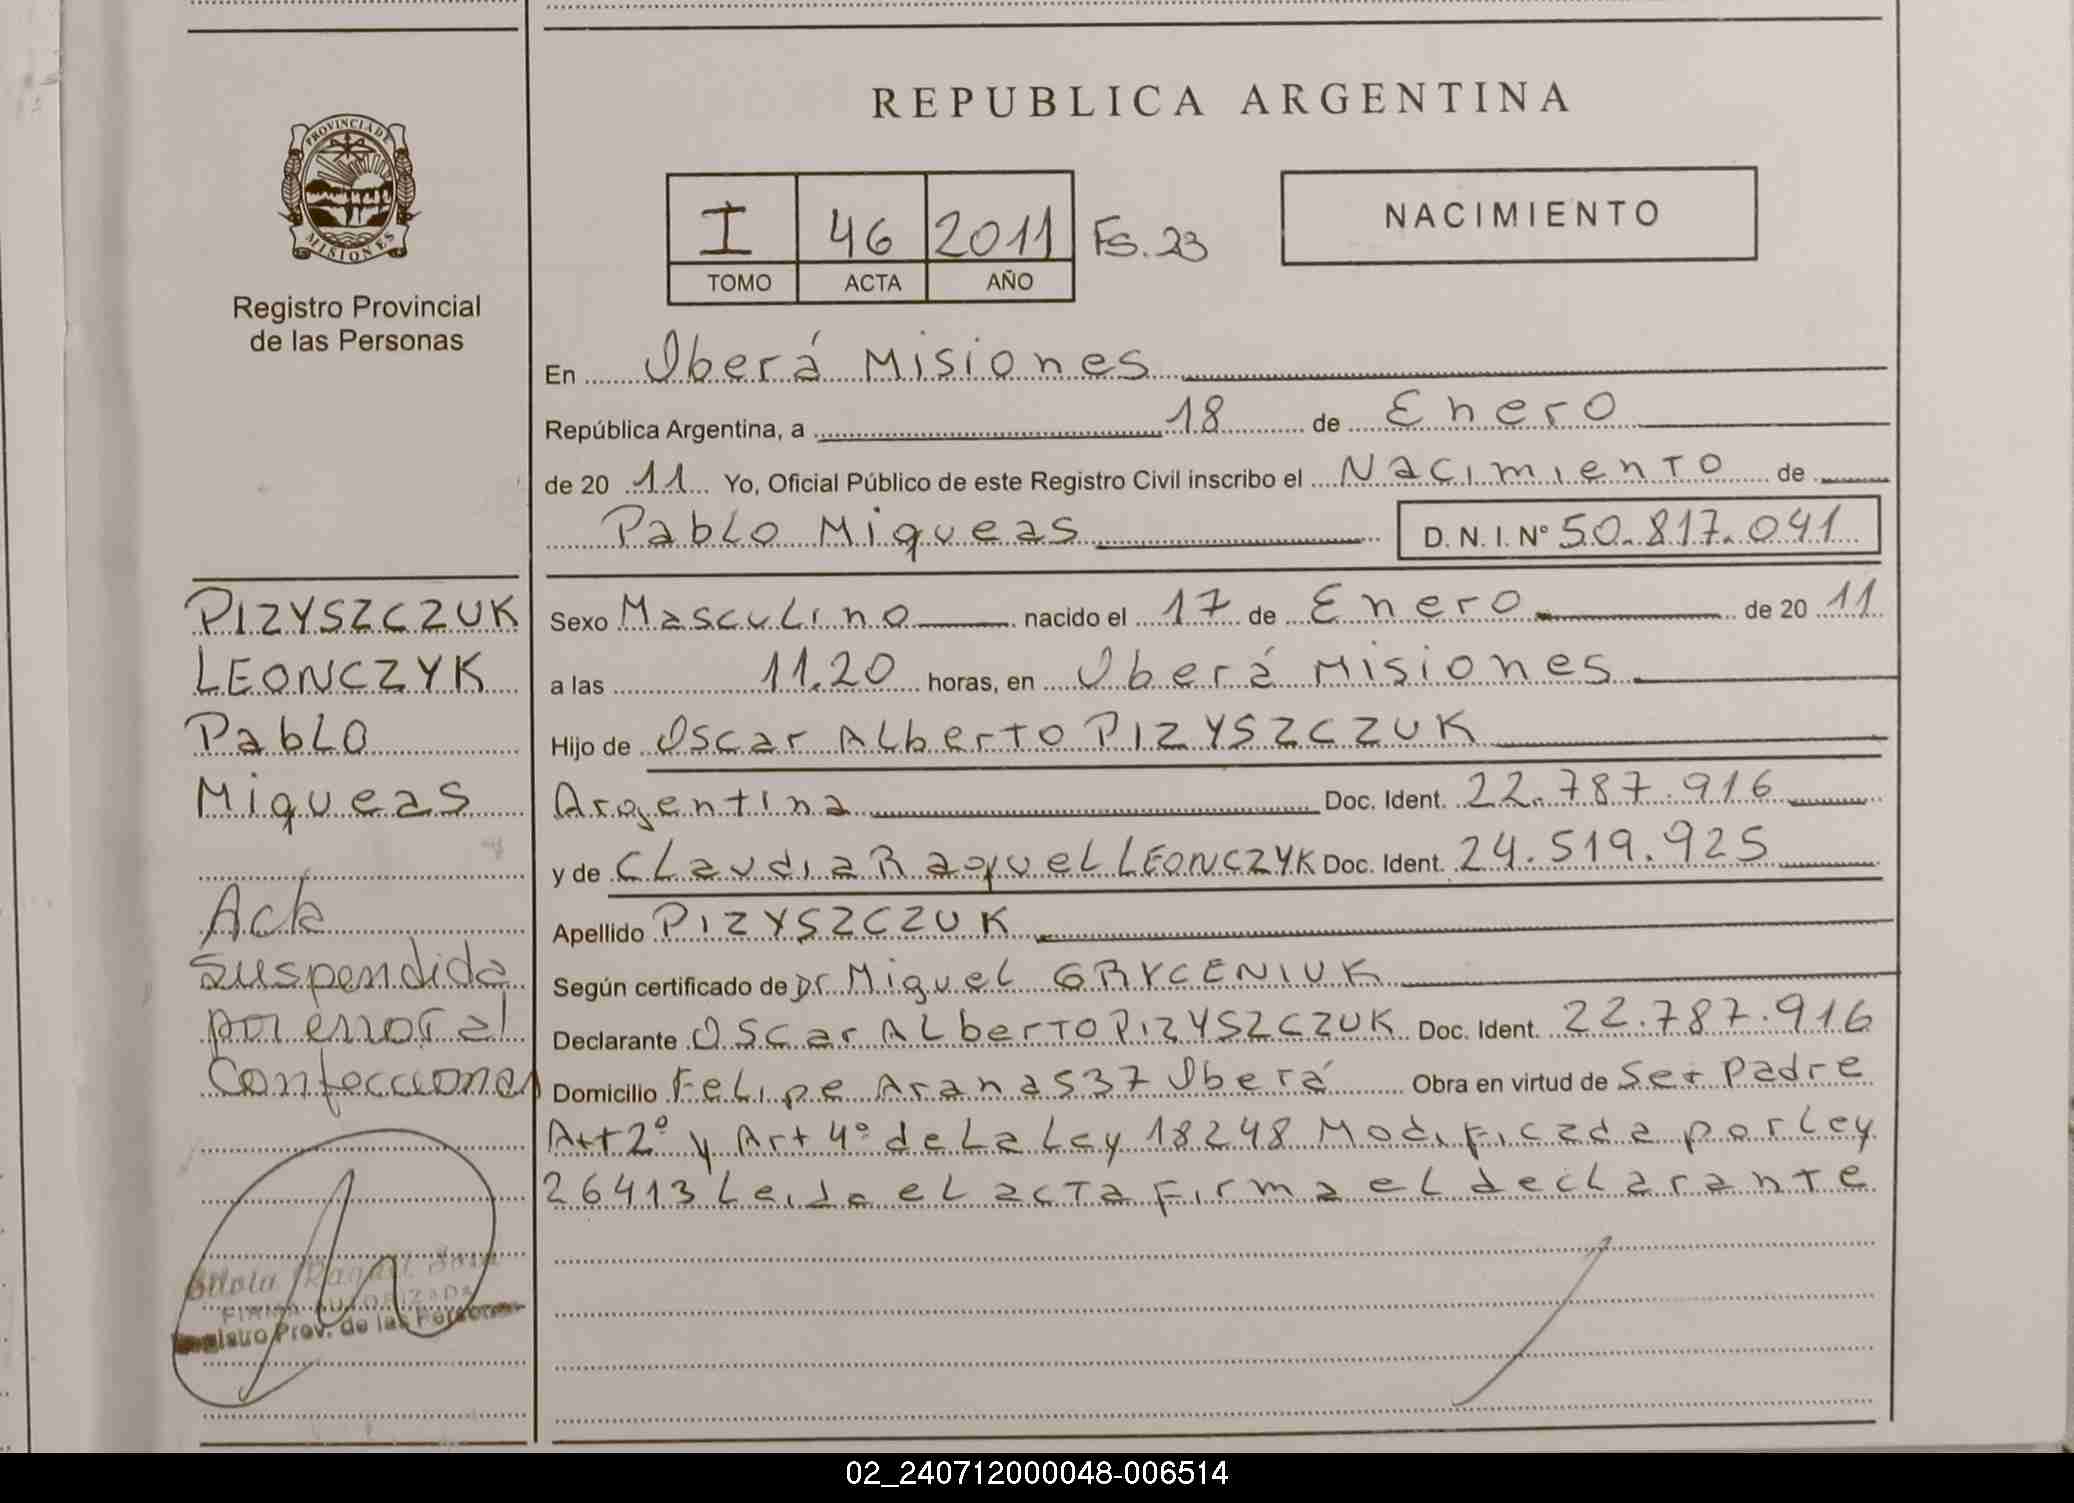 REPUBLICA ARGENTINA
PROVINCIA DE
MISIONES
Registro Provincial
de las Personas
I 46 2011 Fs. 23
TOMO ACTA AÑO
NACIMIENTO
En Oberá Misiones
República Argentina, a 18 de Enero
de 20 11 Yo, Oficial Público de este Registro Civil inscribo el Nacimiento de
Pablo Miqueas D. N. I. Nº 50.817.041
PIZYSZCZUK
LEONCZYK
Pablo
Miqueas
Acta
suspendida
por error al
Confeccionar
FIRMA AUTORIZADA
Registro Prov. de las Personas
Sexo Masculino nacido el 17 de Enero de 20 11
a las 11.20 horas, en Oberá Misiones
Hijo de Oscar Alberto PIZYSZCZUK
Argentina Doc. Ident. 22.787.916
y de Claudia Raquel LEONCZYK Doc. Ident. 24.519.925
Apellido PIZYSZCZUK
Según certificado de Dr Miguel GRYCENIUK
Declarante Oscar Alberto PIZYSZCZUK Doc. Ident. 22.787.916
Domicilio Felipe Arana 537 Oberá Obra en virtud de Ser Padre
Art 2º y Art 4º de La Ley 18248 Modificada por Ley
26413 Leida el acta firma el declarante
02_240712000048-006514